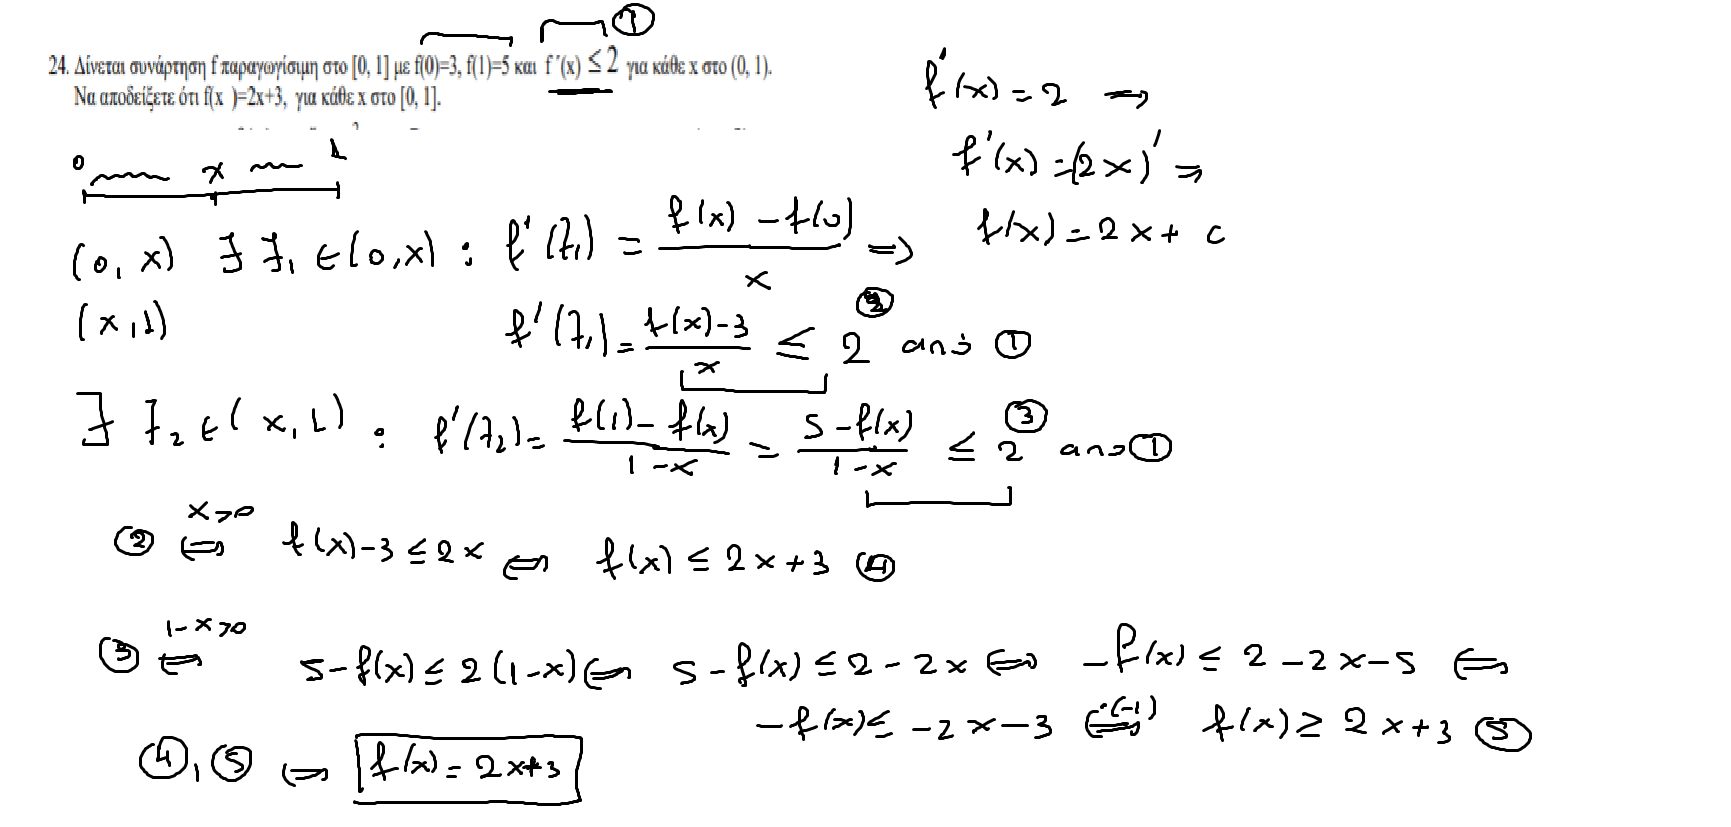 ①
24. Δίνεται συνάρτηση f παραγωγίσιμη στο [0, 1] με f(0)=3, f(1)=5 και f ´(x) ≤ 2 για κάθε x στο (0, 1).
Να αποδείξετε ότι f(x )=2x+3, για κάθε x στο [0, 1].
f'(x) = 2 ⇒
f'(x) = (2x)' ⇒
f(x) = 2x + c
0 x 1
(0, x) ∃ ξ₁ ∈ (0,x) : f'(ξ₁) = (f(x) - f(0))/x ⇒
(x,1) f'(ξ₁) = (f(x)-3)/x ≤ 2 ② από ①
∃ ξ₂ ∈ (x,1) : f'(ξ₂) = (f(1)-f(x))/(1-x) = (5-f(x))/(1-x) ≤ 2 ③ από ①
② x>0 ⇔ f(x)-3 ≤ 2x ⇔ f(x) ≤ 2x+3 ④
③ 1-x>0 ⇔ 5-f(x) ≤ 2(1-x) ⇔ 5-f(x) ≤ 2-2x ⇔ -f(x) ≤ 2-2x-5 ⇔
-f(x) ≤ -2x-3 ⇔ ·(-1) f(x) ≥ 2x+3 ⑤
④, ⑤ ⇒ f(x) = 2x+3